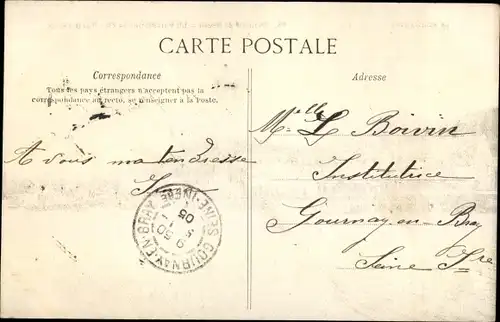 CARTE POSTALE
Correspondance
Tous les pays étrangers n'acceptent pas la
correspondance au recto, se renseigner à la Poste.
A vous ma tendresse
Adresse
Mlle L Boivin
Institutrice
Gournay-en-Bray
Seine Infre
GOURNAY-EN-BRAY SEINE-INFRE